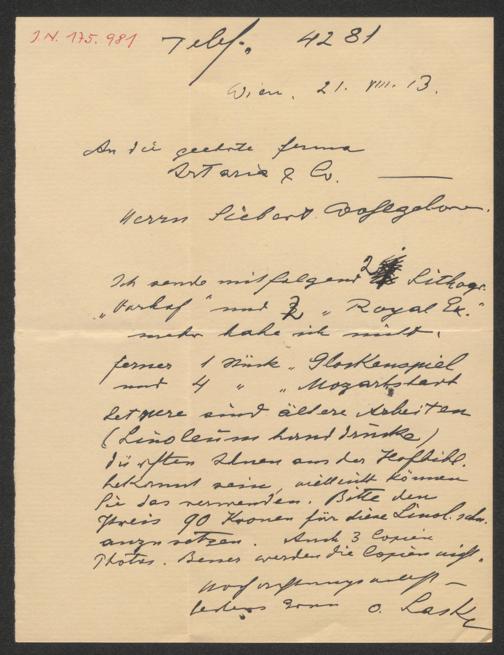 J.N. 175.981
Telef. 4281
Wien. 21. VIII. 13.
An die geehrte Firma
Artaria & Co.
Herrn Siebert Wohlgeboren.
Ich sende mitfolgend 2 Lithogr.
„Vorhof" und 2 „Royal Ex."
mehr habe ich nicht.
ferner 1 Stück „Glockenspiel
und 4 " „Mozartstadt
letzere sind ältere Arbeiten
(Linoleum handdrucke)
dürften Ihnen aus der Hofbibl.
bekannt seine, vielleicht können
Sie das verwenden. Bitte den
Preis 90 Kronen für diese Linol. schn.
anzusetzen. Auch 3 Copien
Photos. Besser werden die Copien nicht.
Hochachtungsvollst
O. Laske